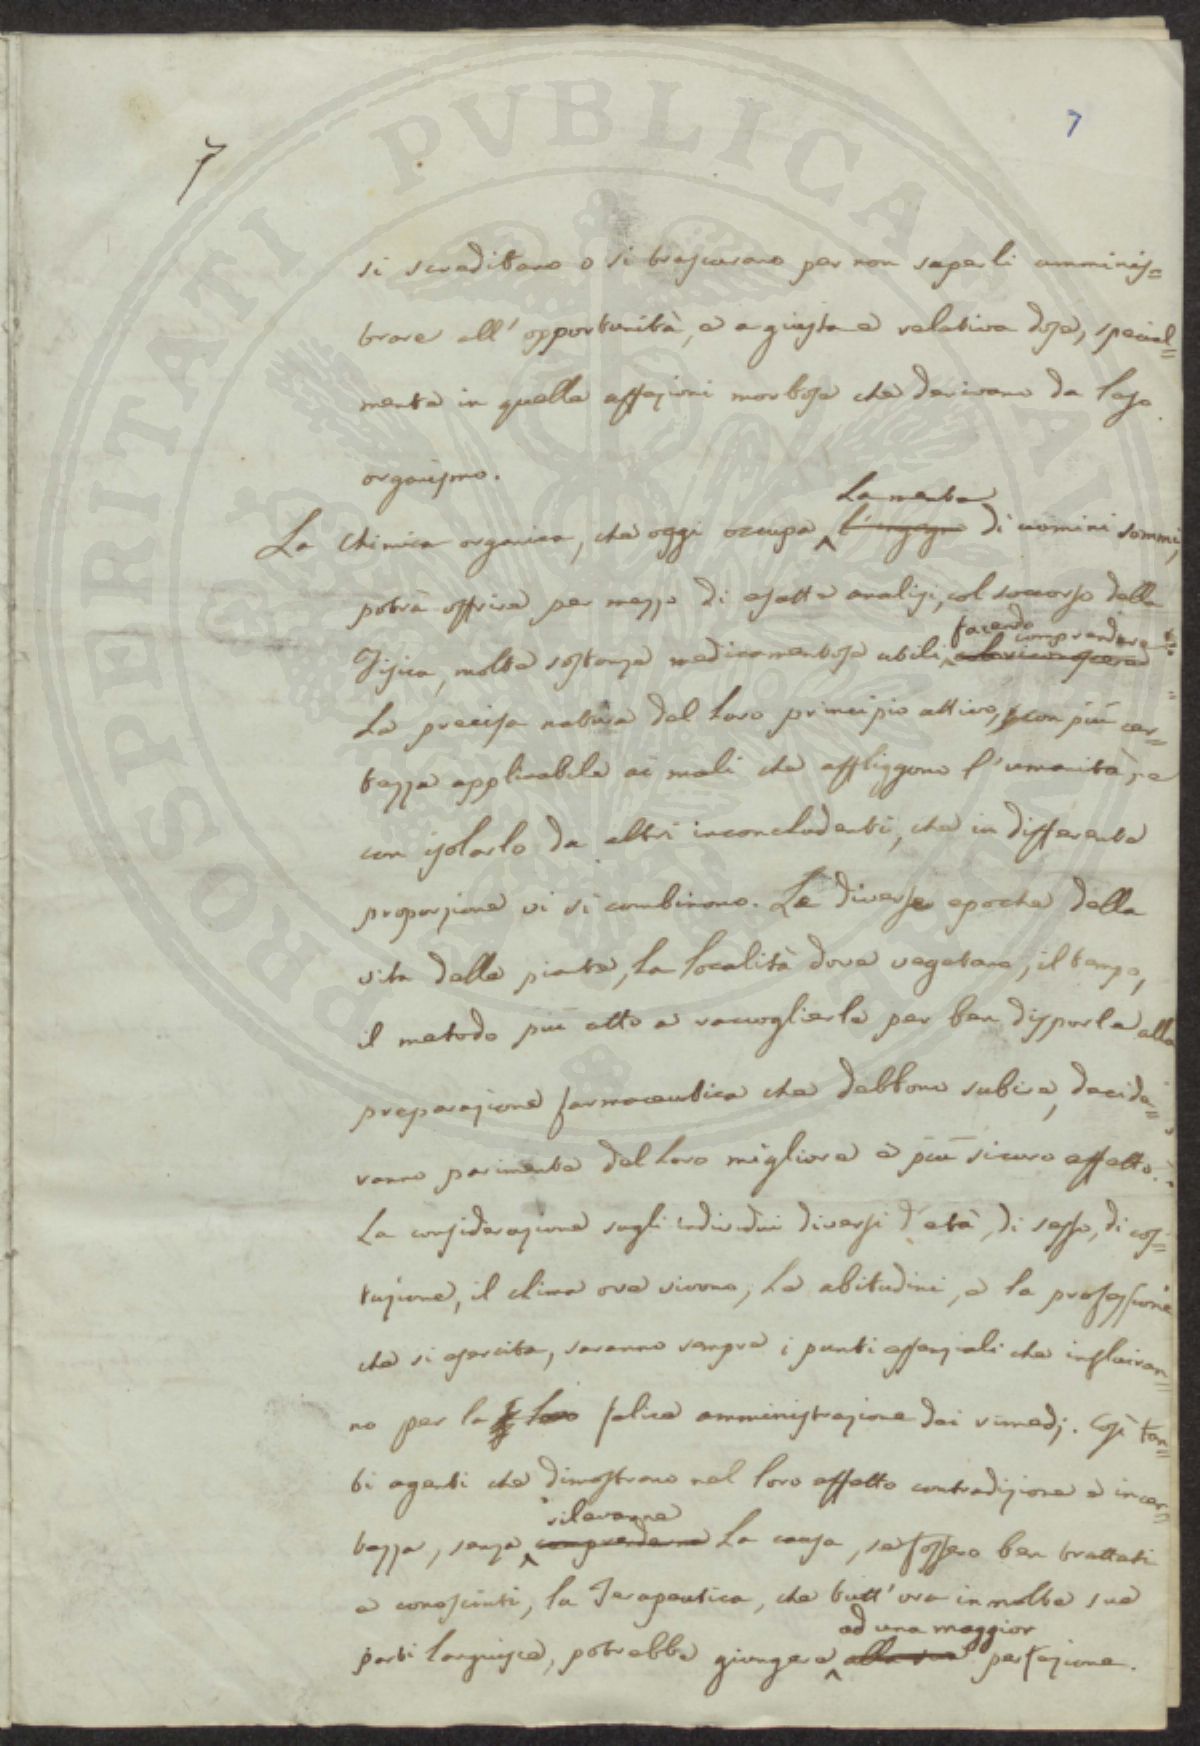 7
7
si screditano o si trascurano per non saperli amminis=
trare all'opportunità, e a giusta e relativa dose, special=
mente in quelle affezioni morbose che derivano da leso
organismo.
La mente
La Chimica organica, che oggi occupa l'ingegno di uomini sommi,
potrà offrire per mezzo di esatte analisi, col soccorso della
facendo comprendere
Fisica, molte sostanze medicamentose utili,
la precisa natura del loro principio attivo, con più cer=
tezza applicabile ai mali che affliggono l'umanità, e
con isolarlo da altri inconcludenti, che in differente
proporzione vi si combinano. Le diverse epoche della
vita delle piante, la località dove vegetano, il tempo,
il metodo più atto a raccoglierle per ben disporle alla
preparazione farmaceutica che debbono subire, decide=
ranno parimente del loro migliore e più sicuro effetto.
La considerazione sugli individui diversi d'età, di sesso, di cos=
tuzione, il clima ove vivono, le abitudini, e la professione
che si esercita, saranno sempre i punti essenziali che influiran=
no per la loro felice amministrazione dei rimedj. Così tan=
ti agenti che dimostrano nel loro effetto contradizione e incer=
rilevarne
tezza, senza comprenderne la causa, se fossero ben trattati
e conosciuti, la Terapeutica, che tutt'ora in molte sue
ad una maggior
parti languisce, potrebbe giungere alla sua perfezione.
PROSPERITATI PVBLICAE AVGENDAE